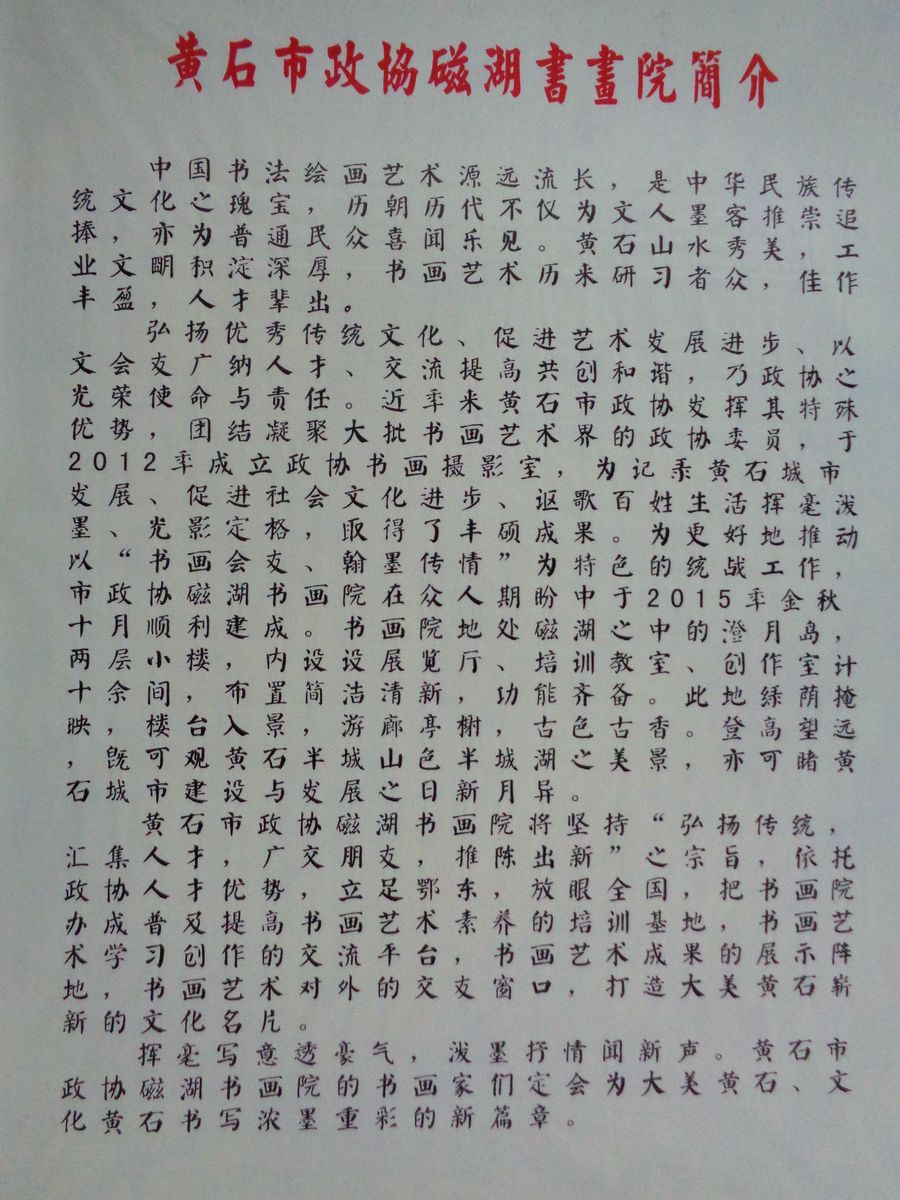 黄石市政協磁湖書畫院簡介
中国书法绘画艺术源远流长，是中华民族传
统文化之瑰宝，历朝历代不仅为文人墨客推崇追
捧，亦为普通民众喜闻乐见。黄石山水秀美，工
业文明积淀深厚，书画艺术历来研习者众，佳作
丰盈，人才辈出。
弘扬优秀传统文化、促进艺术发展进步、以
文会友广纳人才、交流提高共创和谐，乃政协之
光荣使命与责任。近年来黄石市政协发挥其特殊
优势，团结凝聚大批书画艺术界的政协委员，于
2012年成立政协书画摄影室，为记录黄石城市
发展、促进社会文化进步、讴歌百姓生活挥毫泼
墨、光影定格，取得了丰硕成果。为更好地推动
以“书画会友、翰墨传情”为特色的统战工作，
市政协磁湖书画院在众人期盼中于2015年金秋
十月顺利建成。书画院地处磁湖之中的澄月岛，
两层小楼，内设设展览厅、培训教室、创作室计
十余间，布置简洁清新，功能齐备。此地绿荫掩
映，楼台入景，游廊亭榭，古色古香。登高望远
，既可观黄石半城山色半城湖之美景，亦可睹黄
石城市建设与发展之日新月异。
黄石市政协磁湖书画院将坚持“弘扬传统，
汇集人才，广交朋友，推陈出新”之宗旨，依托
政协人才优势，立足鄂东，放眼全国，把书画院
办成普及提高书画艺术素养的培训基地，书画艺
术学习创作的交流平台，书画艺术成果的展示阵
地，书画艺术对外的交友窗口，打造大美黄石崭
新的文化名片。
挥毫写意透豪气，泼墨抒情闻新声。黄石市
政协磁湖书画院的书画家们定会为大美黄石、文
化黄石书写浓墨重彩的新篇章。